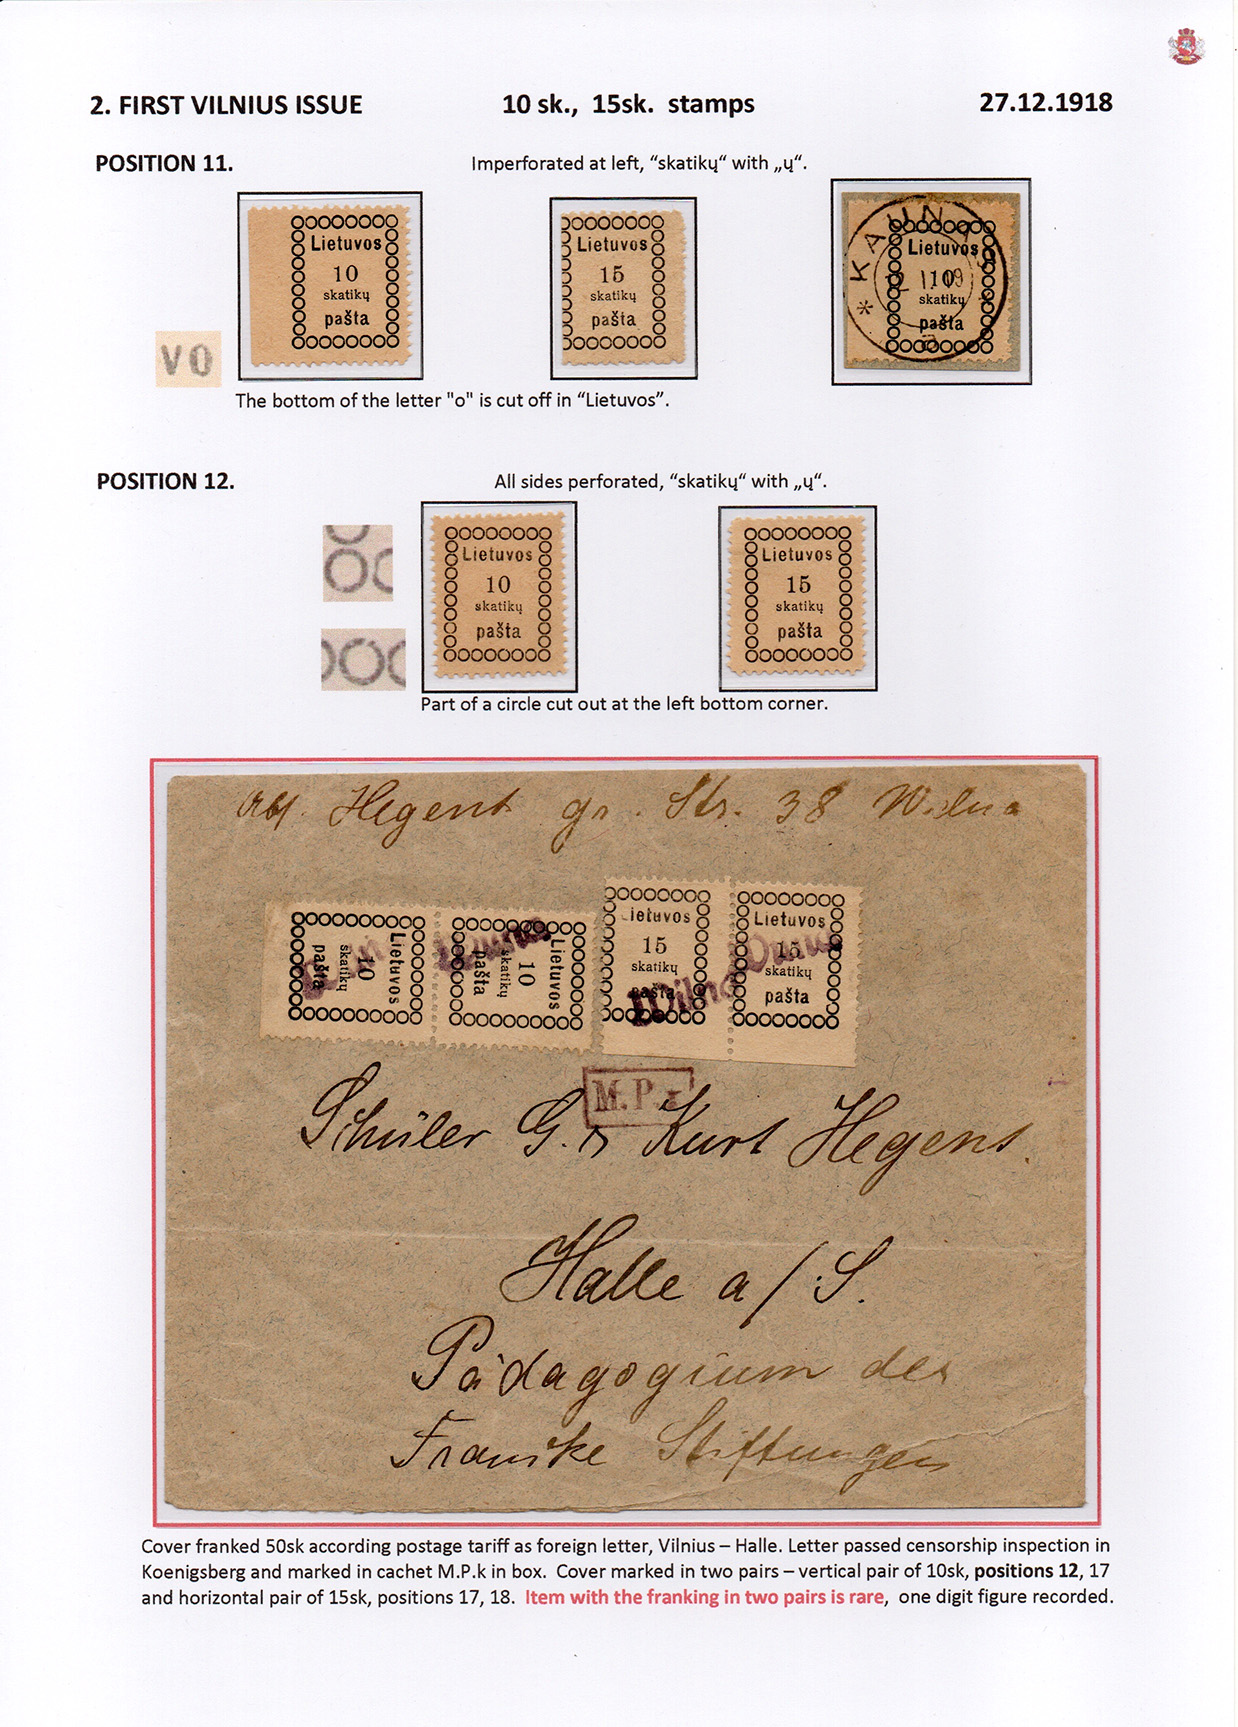 2. FIRST VILNIUS ISSUE 10 sk., 15sk. stamps 27.12.1918
POSITION 11. Imperforated at left, “skatikų“ with „ų“.
Lietuvos
10
skatikų
pašta
Lietuvos
15
skatikų
pašta
KAUNAS
Lietuvos
10
skatikų
pašta
VO
The bottom of the letter "o" is cut off in “Lietuvos”.
POSITION 12. All sides perforated, “skatikų“ with „ų“.
Lietuvos
10
skatikų
pašta
Lietuvos
15
skatikų
pašta
Part of a circle cut out at the left bottom corner.
Hegent gr. Str. 38 Wilna
Lietuvos
10
skatikų
pašta
Lietuvos
10
skatikų
pašta
Wilna
ietuvos
15
skatikų
pašta
Wilna
Lietuvos
15
skatikų
pašta
Wilna
M.P.
Schüler G. Kurt Hegent.
Halle a/S.
Pädagogium der
Franke Stiftungen
Cover franked 50sk according postage tariff as foreign letter, Vilnius – Halle. Letter passed censorship inspection in
Koenigsberg and marked in cachet M.P.k in box. Cover marked in two pairs – vertical pair of 10sk, positions 12, 17
and horizontal pair of 15sk, positions 17, 18. Item with the franking in two pairs is rare, one digit figure recorded.